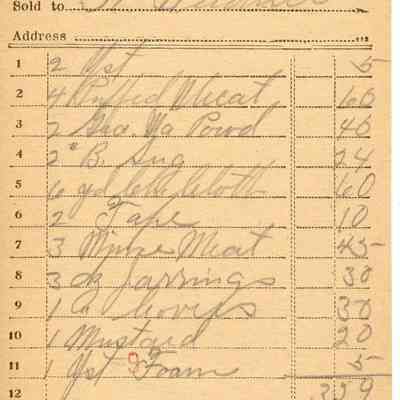 Sold to
Address
1 2 Yst 5
2 4 Puffed Wheat 60
3 2 Powd 40
4 2# B. Sug 24
5 6 yd Cloth 60
6 2 Tape 10
7 3 Mince Meat 45
8 3 dz jar rings 30
9 1 " Covers 30
10 1 Mustard 20
11 1 Yst Foam 5
12 329